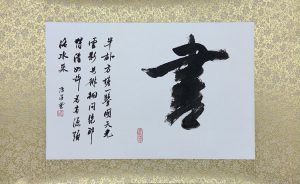 書
半畝方塘一鑒開天光
雲影共徘徊問渠那
得清如許為有源頭
活水來